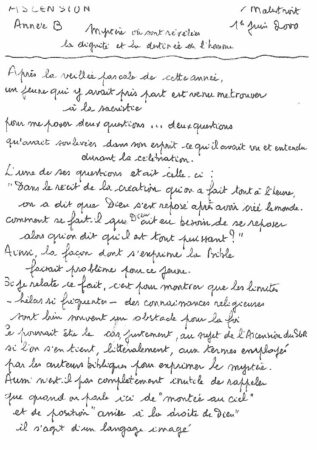 ASCENSION / Malestroit
Année B 1er Juin 2000
Mystère où sont révélées
la dignité et la destinée de l'homme
Après la veillée pascale de cette année,
un jeune qui y avait pris part est venu me trouver
à la sacristie
pour me poser deux questions ... deux questions
qu'avait soulevées dans son esprit ce qu'il avait vu et entendu
durant la célébration.
L'une de ses questions était celle-ci :
"Dans le récit de la création qu'on a fait tout à l'heure,
on a dit que Dieu s'est reposé après avoir créé le monde.
comment se fait-il que Dieu ait eu besoin de se reposer
alors qu'on dit qu'il est tout puissant ?"
Ainsi, la façon dont s'exprime la Bible
faisait problème pour ce jeune.
Si je relate ce fait, c'est pour montrer que les limites
- hélas si fréquentes - des connaissances religieuses
sont bien souvent un obstacle pour la foi
Ce pourrait être le cas justement, au sujet de l'Ascension du SGR
si l'on s'en tient, littéralement, aux termes employés
par les auteurs bibliques pour exprimer le mystère.
Aussi n'est-il pas complètement inutile de rappeler
que quand on parle ici de "montée au ciel"
et de position "assise à la droite de Dieu"
il s'agit d'un langage imagé